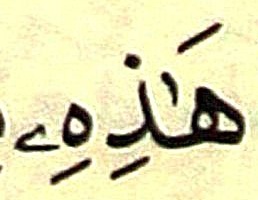 هَٰذِهِۦ